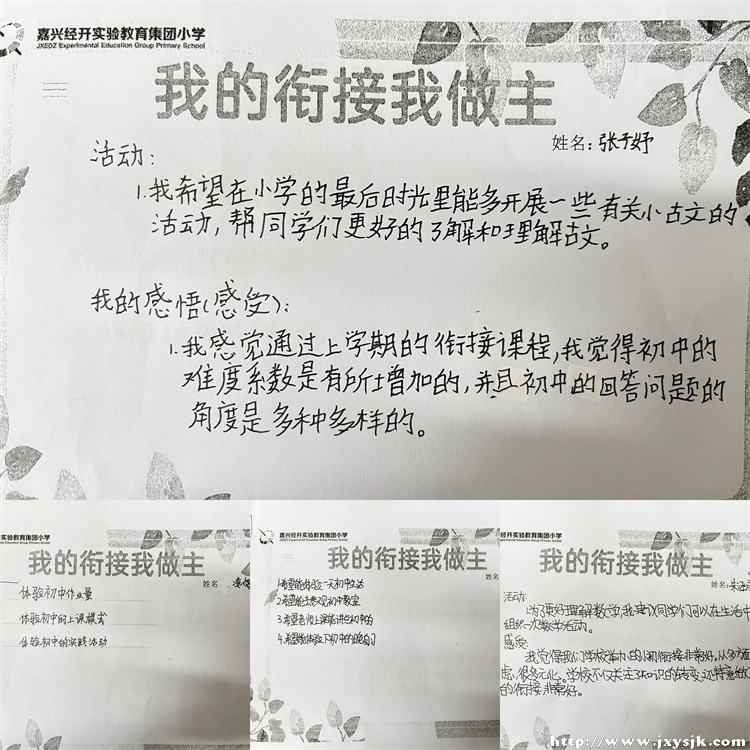 嘉兴经开实验教育集团小学
JXEDZ Experimental Education Group Primary School
我的衔接我做主
姓名：张予妤
活动：
1.我希望在小学的最后时光里能多开展一些有关小古文的
活动，帮同学们更好的了解和理解古文。
我的感悟(感受)：
1.我感觉通过上学期的衔接课程，我觉得初中的
难度系数是有所增加的，并且初中的回答问题的
角度是多种多样的。
实验教育集团小学
我的衔接我做主
姓名
体验初中作业量
体验初中的上课模式
体验初中的实践活动
嘉兴经开实验教育集团小学
JXEDZ Experimental Education Group Primary School
我的衔接我做主
1.希望能体验一天初中生活
2.希望能去参观初中教室
3.希望老师上课能讲些初中的
4.希望能体验下初中的晚自习
经开实验教育集团小学
我的衔接我做主
姓名：
活动：
为了更好理解数学，我建议同学们可以在生活中
组织一次数学活动。
感受：
我觉得我们学校举办的小初衔接非常好，从多方面
虑，很多元化。学校不仅关注了知识的转变，还特意做
的衔接非常好。
http://www.jxysjk.com